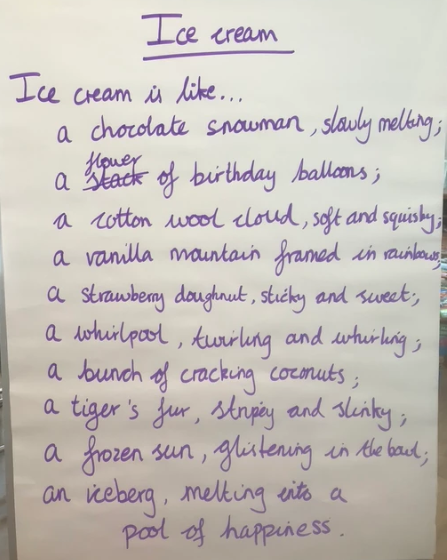 Ice cream
Ice cream is like...
a chocolate snowman, slowly melting;
flower
a stack of birthday balloons;
a cotton wool cloud, soft and squishy;
a vanilla mountain framed in rainbows;
a strawberry doughnut, sticky and sweet;
a whirlpool, twirling and whirling;
a bunch of cracking coconuts;
a tiger's fur, stripey and slinky;
a frozen sun, glistening in the bowl;
an iceberg, melting into a
pool of happiness.